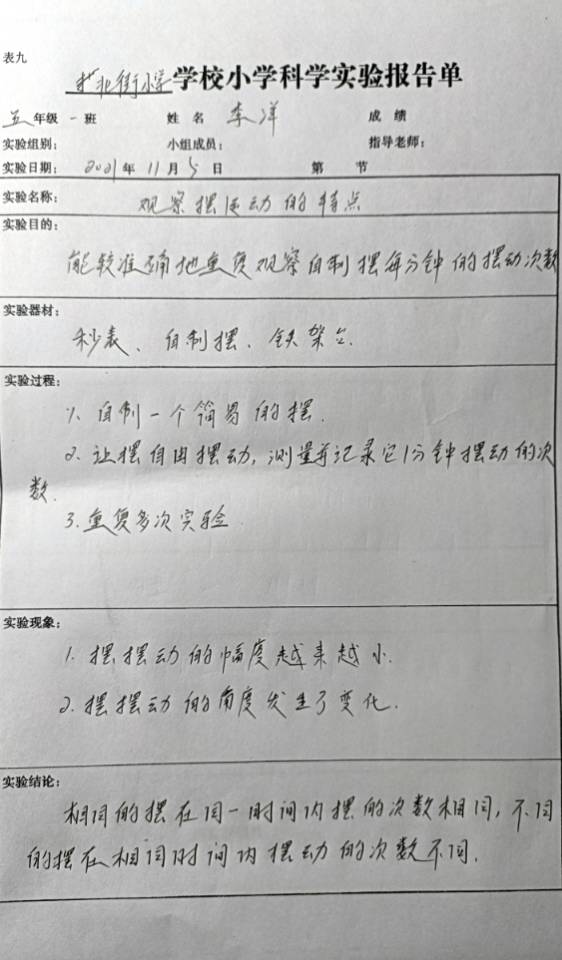 表九
北街小学学校小学科学实验报告单
五年级 一班 姓名 李洋 成绩
实验组别: 小组成员: 指导老师:
实验日期: 2021年 11月 5日 第 节
实验名称: 观察摆运动的特点
实验目的:
能较准确地重复观察自制摆每分钟的摆动次数
实验器材:
秒表、自制摆、铁架台.
实验过程:
1. 自制一个简易的摆.
2. 让摆自由摆动,测量并记录它1分钟摆动的次
数.
3. 重复多次实验
实验现象:
1. 摆摆动的幅度越来越小.
2. 摆摆动的角度发生了变化.
实验结论:
相同的摆在同一时间内摆的次数相同,不同
的摆在相同时间内摆动的次数不同.